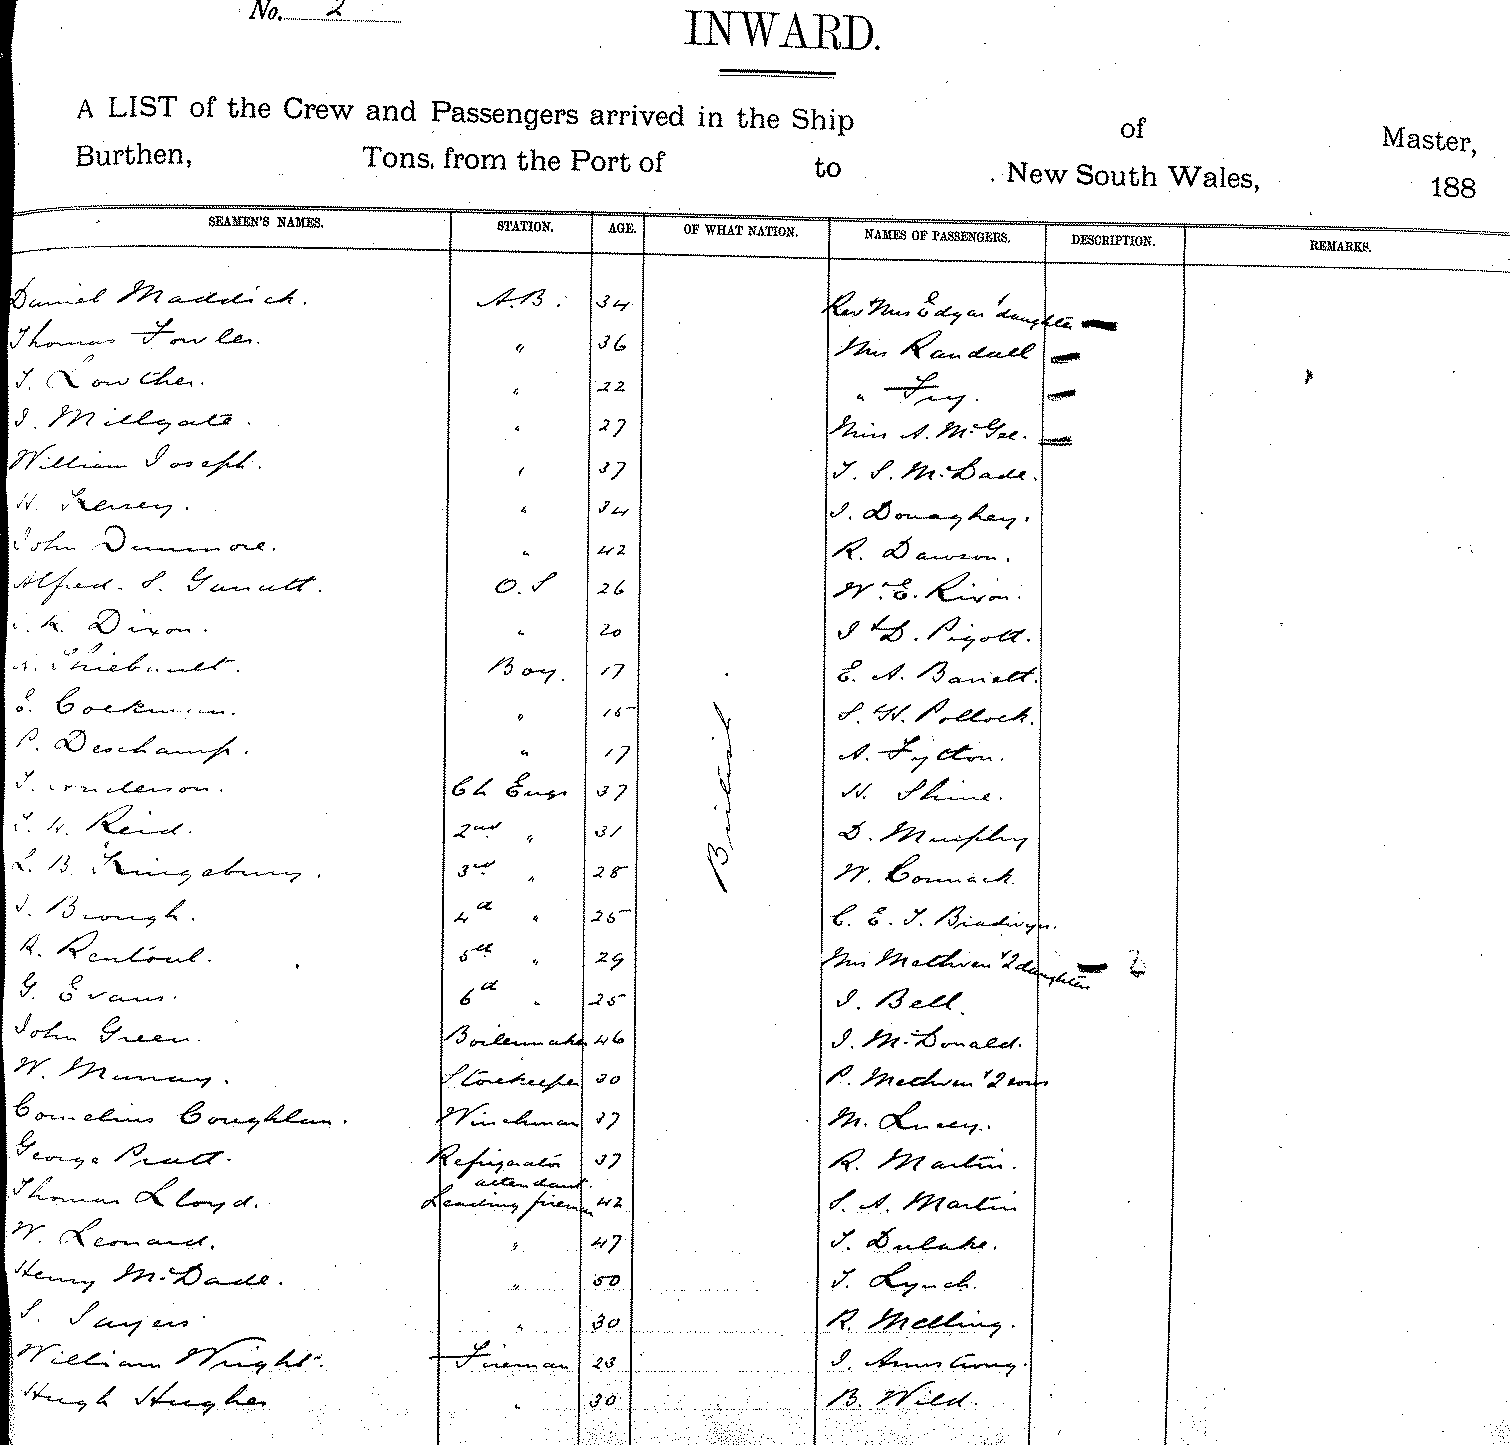 No. 2
INWARD.
A LIST of the Crew and Passengers arrived in the Ship of Master,
Burthen, Tons, from the Port of to New South Wales, 188
SEAMEN'S NAMES. STATION. AGE. OF WHAT NATION. NAMES OF PASSENGERS. DESCRIPTION. REMARKS.
Daniel Maddick. A.B. 34 Rev Mrs Edgar & daughter
Thomas Fowler. " 36 Mrs Randall
T. Lowther. " 22 " Fry.
J. Millgate. " 27 Miss A. McGee.
William Joseph. " 37 T. S. McDade.
H. " 34 J. Donaghey.
John Dunmore. " 42 R. Dawson.
Alfred. S. Garratt. O.S 26 W. E. Rixon.
K. Dixon. " 20 J & D. Pigott.
Thiebault. Boy. 17 E. A. Barrett.
E. Cockman. " 15 S. H. Pollock.
P. Deschamp. " 17 A. Fytton.
T. Anderson. Ch Engr 37 H. Shine.
Reid. 2nd " 31 D. Murphy
L. B. Kingsbury. 3rd " 28 W. Cormack.
J. Brough. 4th " 25 C. E. T.
R. Rentoul. 5th " 29 Mrs Methven & 2 daughters 2
G. Evans. 6th " 25 J. Bell.
John Green. Boilermaker 46 J. McDonald.
W. Murray. Storekeeper 30 P. Methven & 2 sons
Cornelius Coughlan. Winchman 37 M. Lucey.
George Pratt. Refrigerator attendant. 37 R. Martin.
Thomas Lloyd. Leading fireman 42 S. A. Martin
W. Leonard. " 47 T. Dulake.
Henry McDade. " 50 T. Lynch.
S. Sayers " 30 R. Melling.
William Wright. Fireman 23 J. Armstrong.
Hugh Hughes " 30 B. Wild.
British.